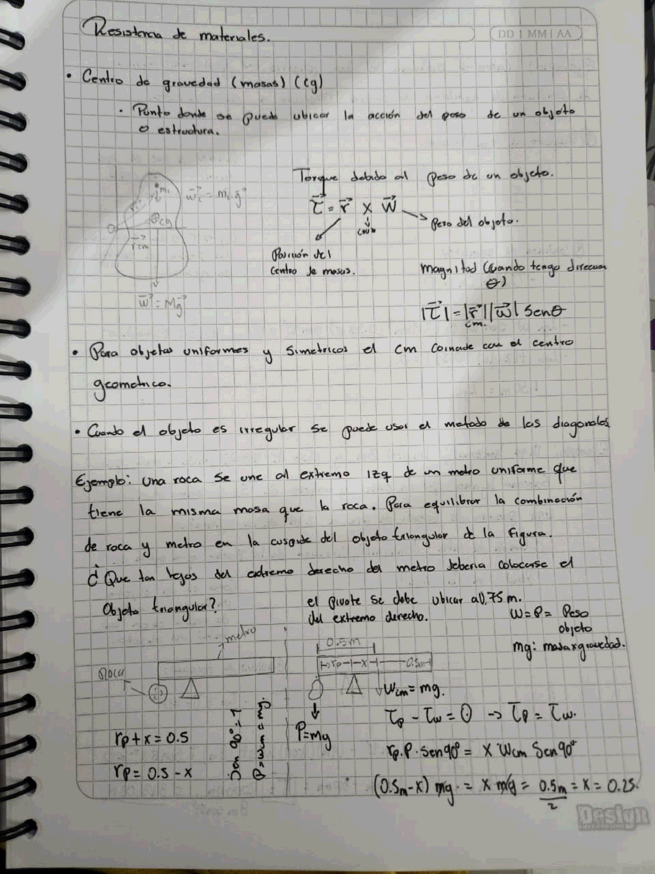 Resistencia de materiales.
DD | MM | AA
• Centro de gravedad (masas) (cg)
• Punto donde se puede ubicar la acción del peso de un objeto
o estructura.
Torque debido al peso de un objeto.
w⃗ᵢ = mᵢ g⃗
mᵢ
cg
r⃗cm
w⃗ = Mg⃗
τ⃗ = r⃗ x w⃗
Peso del objeto.
cruz
Posición del
centro de masas.
magnitud (Cuando tengo direccion
θ)
|τ⃗| = |r⃗cm||w⃗| Senθ
• Para objetos uniformes y simetricos el cm coincide con el centro
geometrico.
• Cuando el objeto es irregular se puede usar el metodo de las diagonales
Ejemplo: una roca se une al extremo izq de un metro uniforme que
tiene la misma masa que la roca. Para equilibrar la combinación
de roca y metro en la cuspide del objeto triangular de la figura.
¿Que tan lejos del extremo derecho del metro deberia colocarse el
Objeto triangular?
el pivote se debe ubicar a 0,75 m.
del extremo derecho.
W = P = Peso
objeto
mg: masa x gravedad.
metro
Roca
0.5m
rp x 0.5m
Wcm = mg.
P = mg
rp + x = 0.5
rp = 0.5 - x
Sen 90° = 1
P = wcm = mg.
τp - τw = 0 → τp = τw.
rp. P. sen90° = x Wcm Sen90°
(0.5m - x) mg = x mg = 0.5m/2 = x = 0.25.
Design